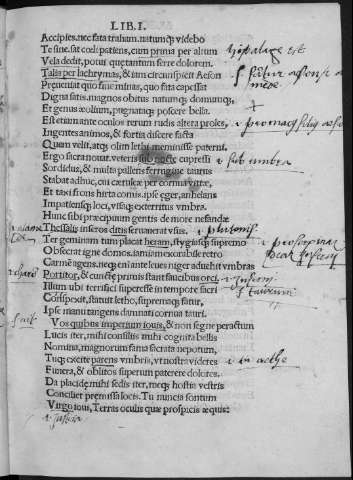 LIB. I.
Accipies. nec fata traham. natumq; videbo
Te sine. sat cœli patiens, cum prima per altum
Vela dedit, potui quetantum ferre dolorem.
Talis per lachrymas, & iam circunspicit Aeson
Præueniat quo fine minas, quo fata capessat
Digna satis. magnos obitus natumq; domumq;
Et genus æolium, pugnataq; poscere bella.
Est etiam ante oculos rerum rudis altera proles,
Ingentes animos, & fortia discere facta
Quam velit, atq; olim leti meminisse paterni.
Ergo sacra nouat. veteris sub nocte cupressi
Sordidus, & multa pallens ferrugine taurus
Stabat adhuc, cui cæruleæ per cornua vittæ,
Et taxi frons hirta comis. ipse æger, anhelans
Impatiensq; loci, visaq; exterritus vmbra.
Hunc sibi præcipuum gentis de more nefandæ
Thessalis inferos ditis seruauerat vsus.
Ter geminam tum placat heram, stygiasq; supremo
Obsecrat igne domos. iamiam exorabile retro
Carmen agens. neq; enim ante leues niger aduehit vmbras
Portitor, & cunctæ primis stant faucibus orci.
Illum vbi terrifici superesse in tempore sacri
Conspexit, statuit letho, supremaq; fatur,
Ipse manu tangens damnati cornua tauri.
Vos quibus imperium iouis, & non segne peractum
Lucis iter, mihi consiliis mihi cognita bellis
Nomina, magnorum fama sacrata nepotum,
Tuq; excite parens vmbris, vt nostra videres
Funera, & oblitos superum paterere dolores.
Da placidæ mihi sedis iter, meq; hostia vestris
Conciliet præmissa locis. Tu nuncia sontum
Virgo ioui, Terras oculis quæ prospicis æquis: